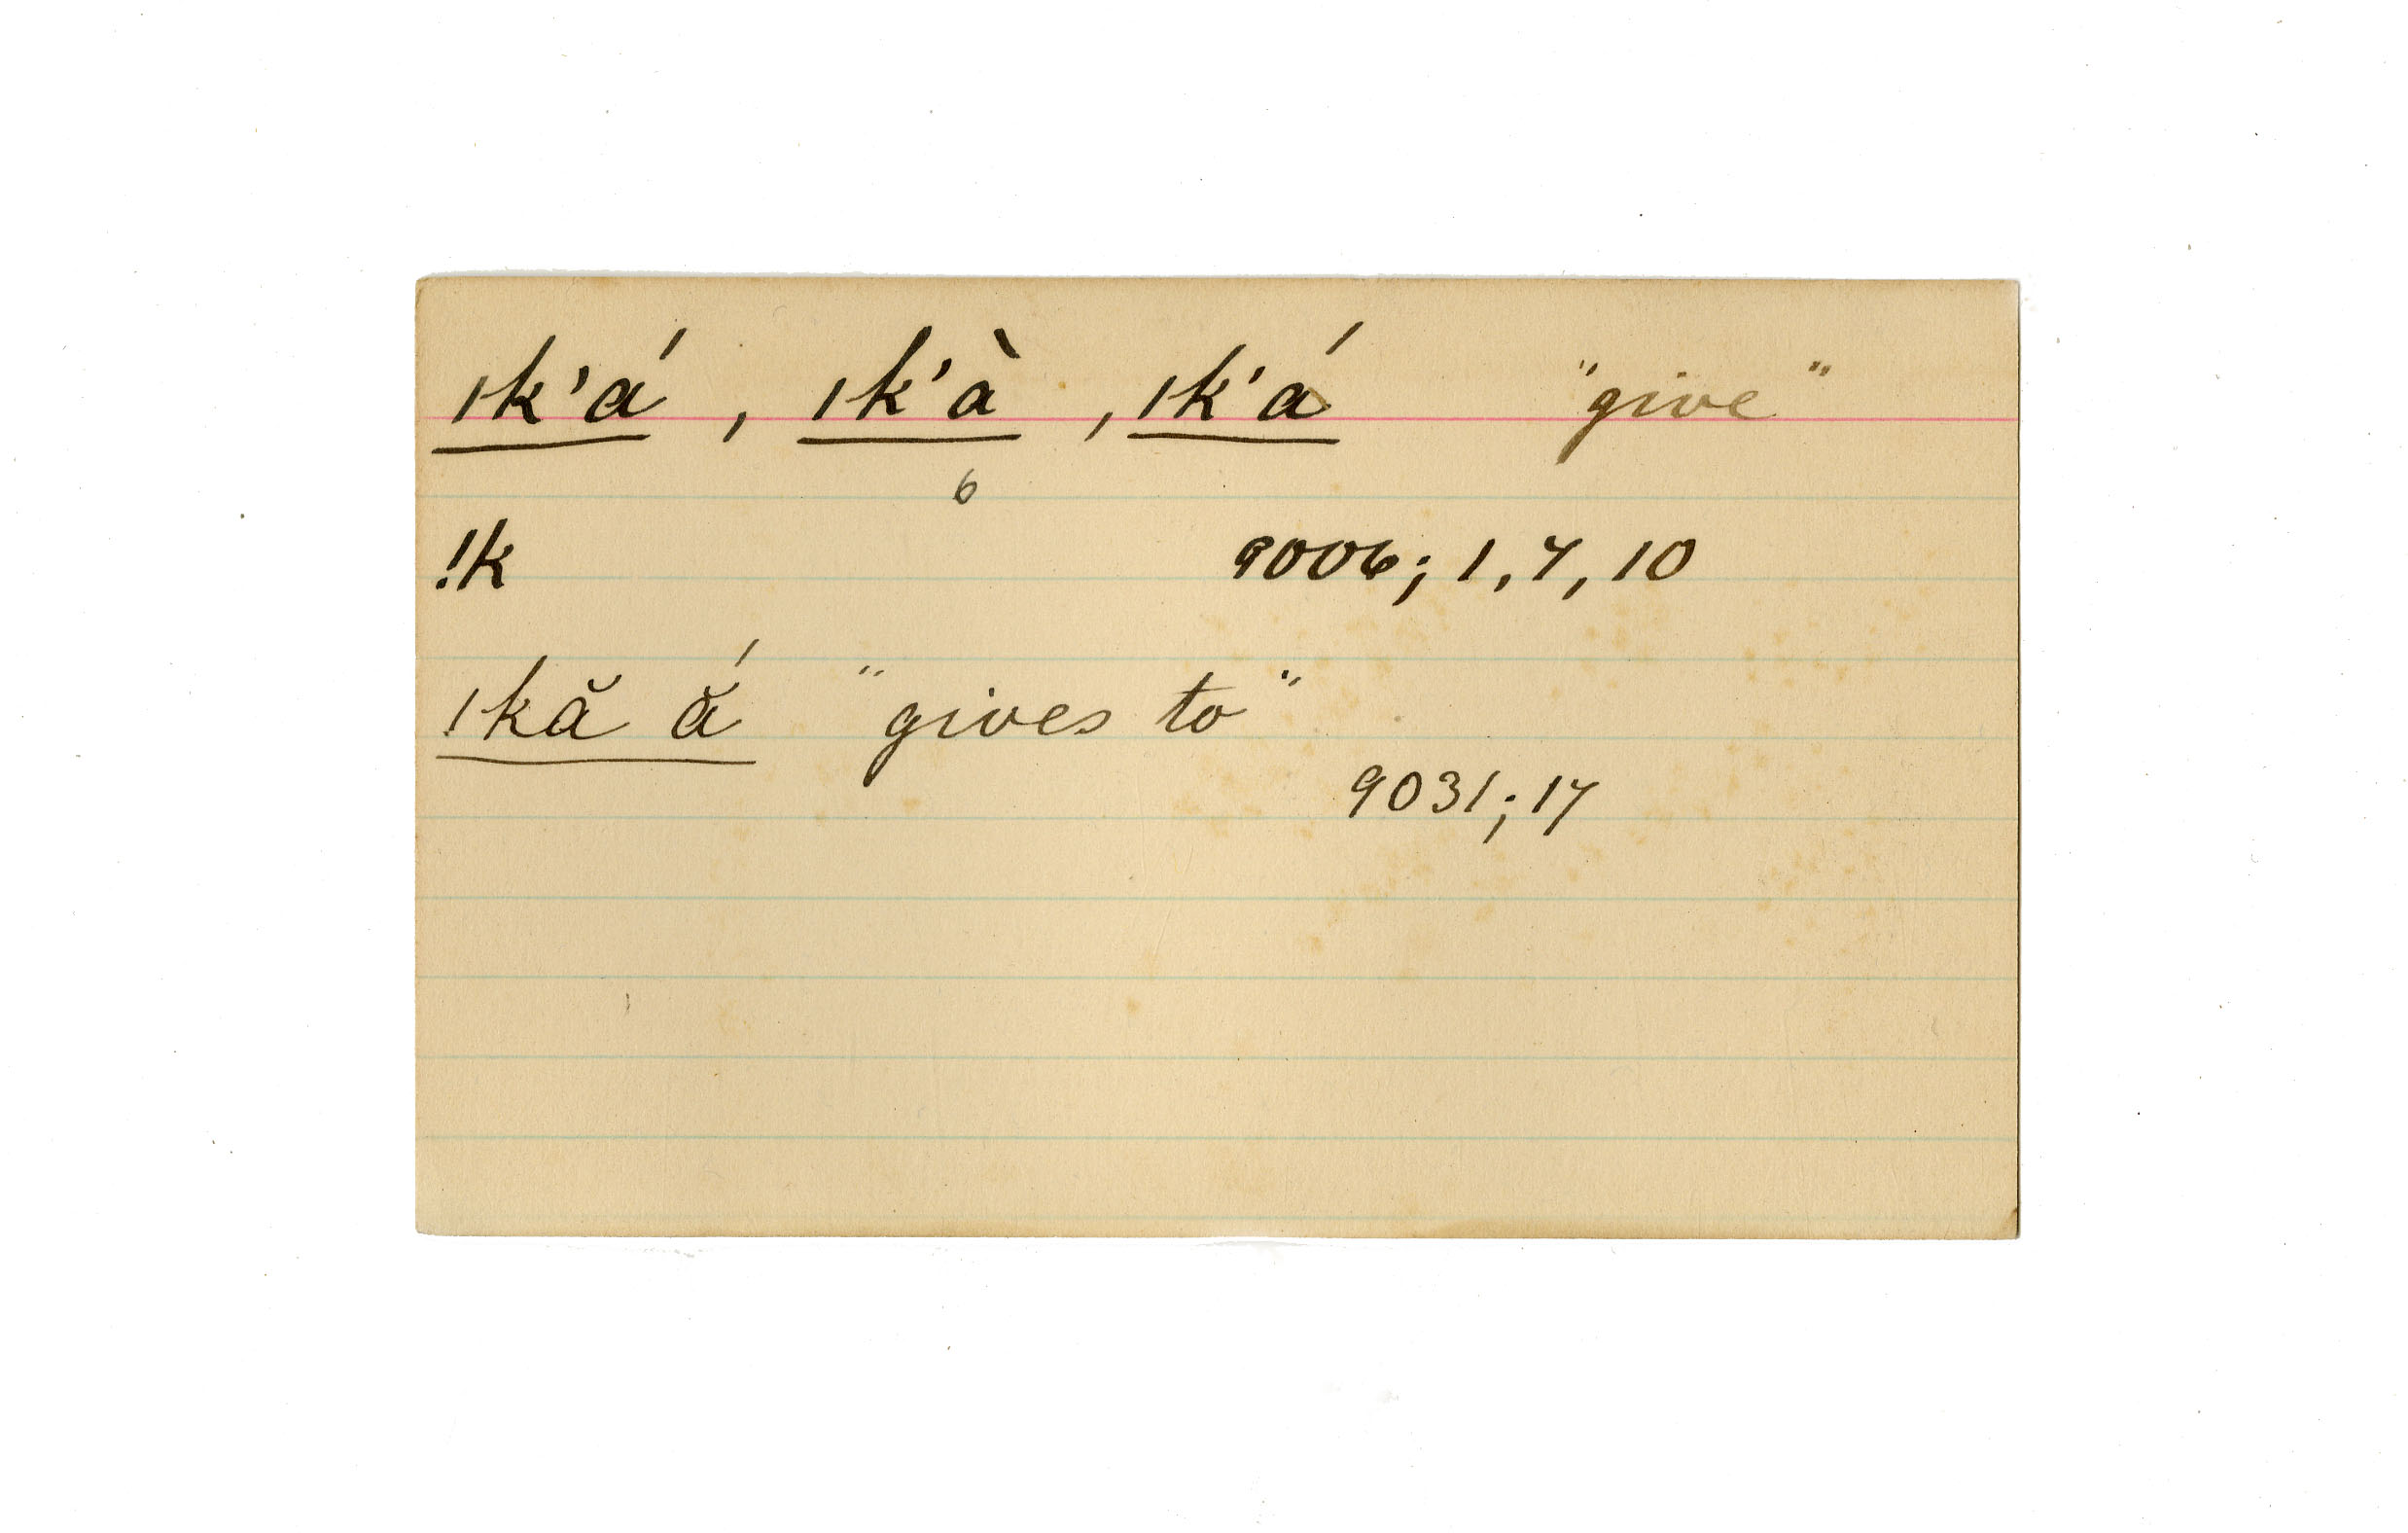 ık'á , ık'à , ık'á "give"
6
!k 9006; 1, 7, 10
!kă ắ "gives to"
9031; 17